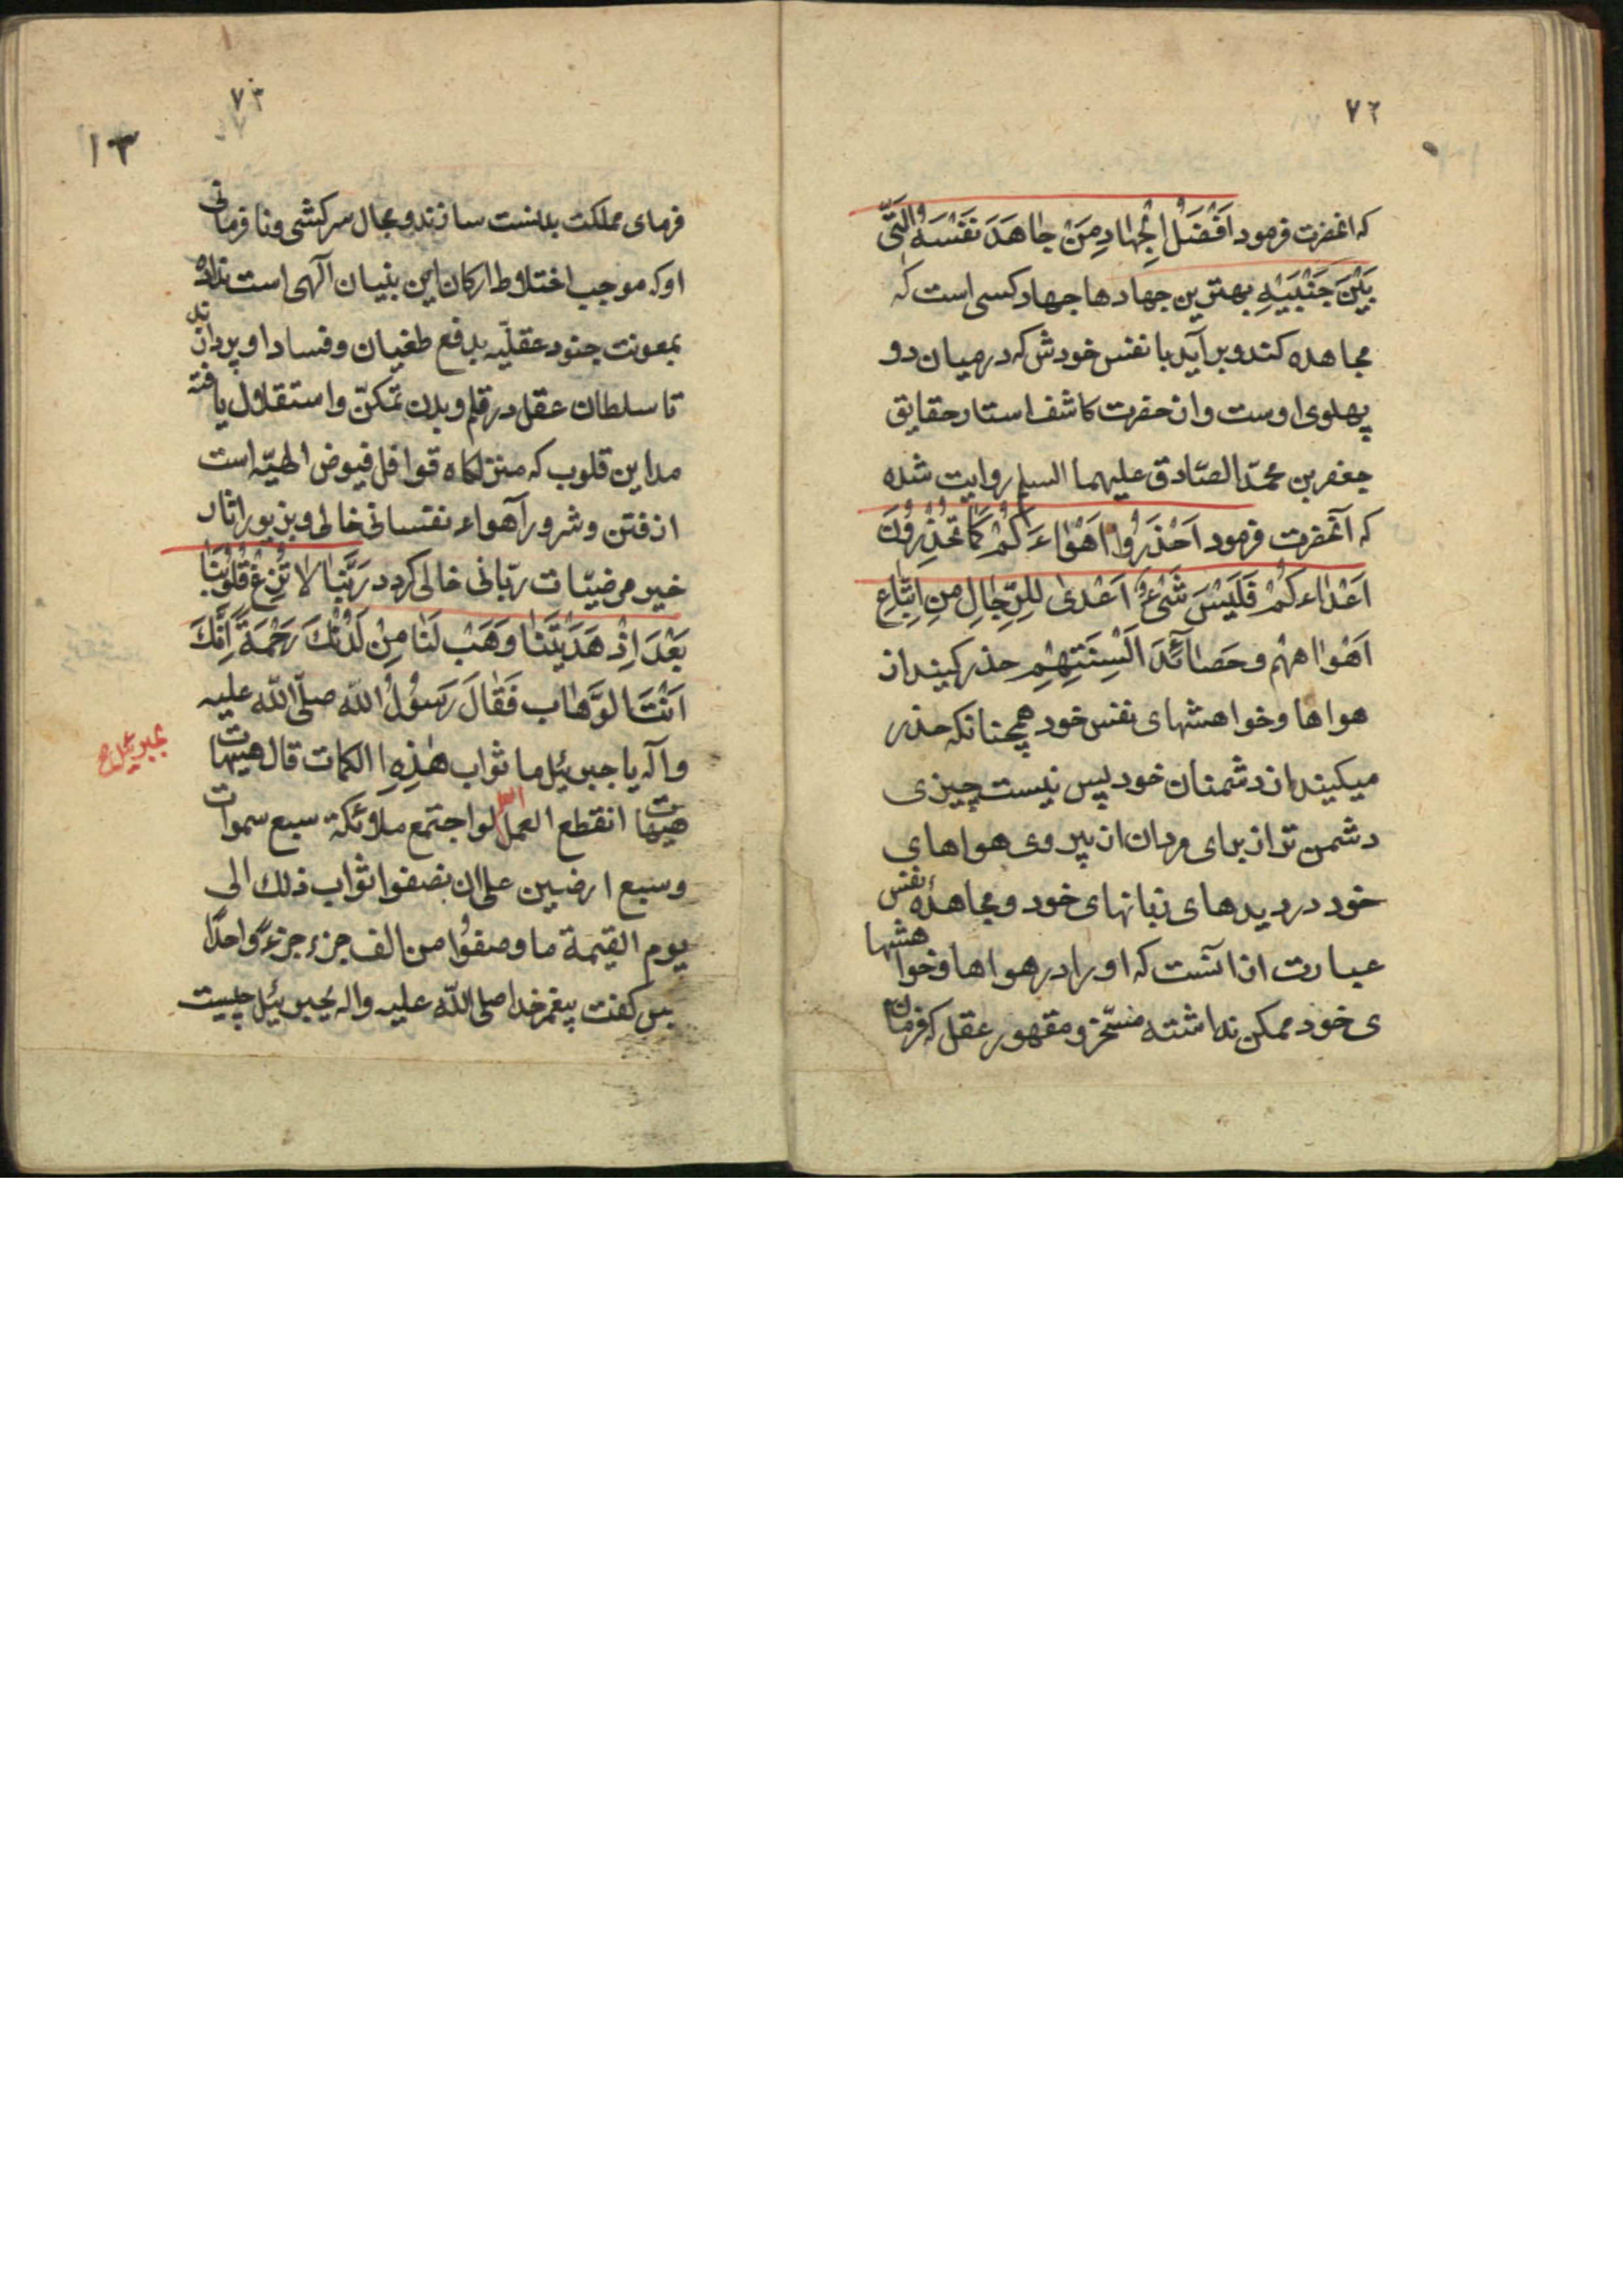 ٧٢
که انحضرت فرمود اَفْضَلُ الْجِهادِ مَنْ جاهَدَ نَفْسَهُ الَّتی
بَیْنَ جَنْبَیْهِ بهترین جهادها جهاد کسی است که
مجاهده کند و برآید با نفس خودش که در میان دو
پهلوی اوست و ان حضرت کاشف استار حقایق
جعفر بن محمّد الصّادق علیهما السلم روایت شده
که آنحضرت فرمود اَحْذَرُوا اَهْواءَکُمْ کَما تَحْذَرُونَ
اَعْداءَکُمْ فَلَیْسَ شَیْءٌ اَعْدی لِلرِّجالِ مِنِ اِتِّباعِ
اَهْواءهِمْ و حَصائدَ اَلْسِنَتِهِمْ حذر کنید از
هواها و خواهشهای نفس خود همچنانکه حذر
میکنید از دشمنان خود پس نیست چیزی
دشمن تر از برای مردان از پیروی هواهای
خود و درویدهای زبانهای خود و مجاهدهٔ نفس
عبارت از انست که او را در هواها و خواهشها
ی خود ممکن نداشته مسخّر و مقهور عقل که فرمان
٧٣
١٣
فرمای مملکت بدنست سازند و مجال سرکشی و نافرمانی
او که موجب اختلاط ارکان این بنیان آلهی است نداده
بمعونت جنود عقلیّه بدفع طغیان و فساد او پردازند
تا سلطان عقل در قلمرو بدن تمکّن و استقلال یافته
مداین قلوب که منزلکاه قوافل فیوض الهیّه است
از فتن و شرور آهواء نفسانی خالی و بزیور اثار
خیر مرضیّات ربّانی حالی کردد رَبَّنا لا تُزِغْ قُلُوبَنا
بَعْدَ اِذْ هَدَیْتَنا وَهَبْ لَنا مِنْ لَدُنْکَ رَحْمَةً اِنَّکَ
اَنْتَ الوَهّاب فَقالَ رَسُولُ اللّه صلّی اللّه علیه
وآله یا جبرئیل ما ثواب هٰذِهِ الکلمات قال هیهات
جبرئیل ع
هیهات انقطع العمل لو اجتمع ملائکة سبع سموات
وسبع ارضین علی ان یصفوا ثواب ذلک الی
یوم القیمة ما وصفوا من الف جزء جزءً واحدًا
پس کفت پیغمبر خدا صلی اللّه علیه واله بجبرئیل چیست